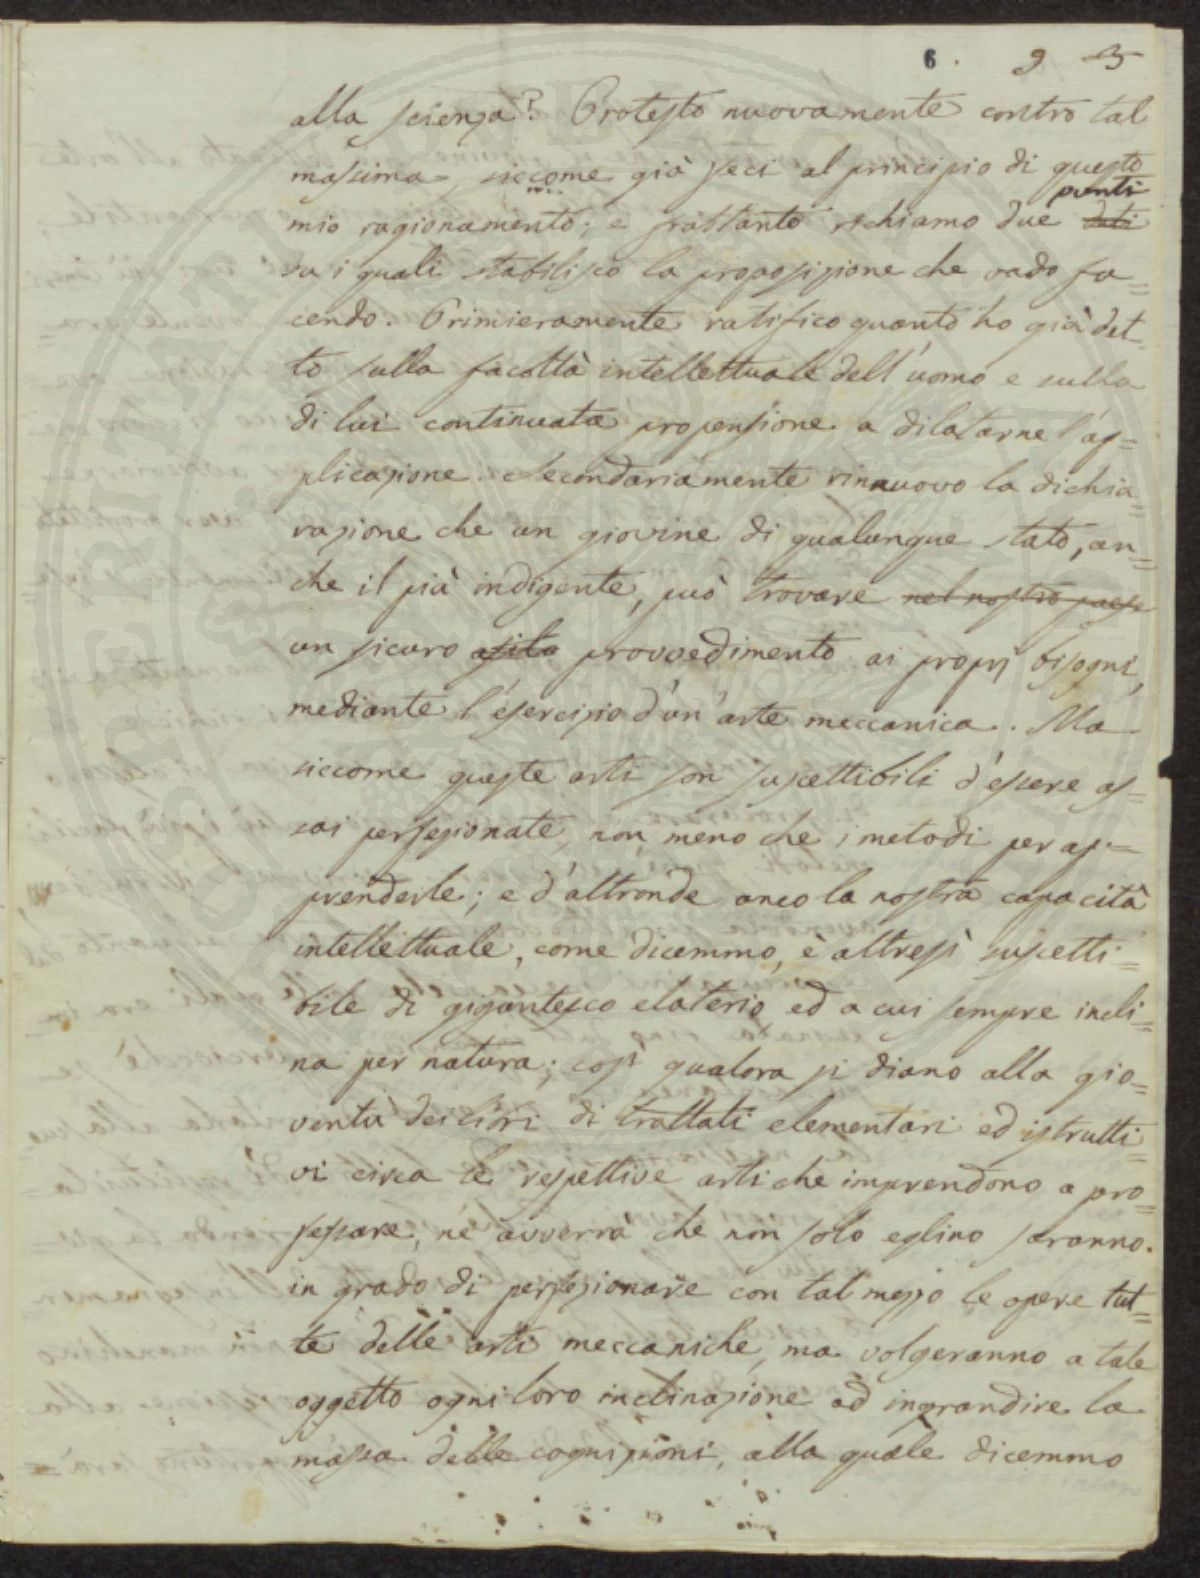 6 . 9 5
alla scienza? Protesto nuovamente contro tal
massima, siccome già feci al principio di questo
punti
mio ragionamento; e frattanto richiamo due dati
su i quali stabilisco la proposizione che vado fa=
cendo. Primieramente ratifico quanto ho già det=
to sulla facoltà intellettuale dell'uomo e sulla
di lui continuata propensione a dilatarne l'ap=
plicazione. Secondariamente rinnuovo la dichia=
razione che un giovine di qualunque stato, an=
che il più indigente, può trovare nel nostro paese
un sicuro asilo provvedimento ai proprj bisogni,
mediante l'esercizio d'un'arte meccanica. Ma
siccome queste arti son suscettibili d'essere as=
sai perfezionate, non meno che i metodi per ap=
prenderle; e d'altronde anco la nostra capacità
intellettuale, come dicemmo, è altresì suscetti=
bile di gigantesco elaterio, ed a cui sempre incli=
na per natura; così qualora si diano alla gio=
ventù dei libri di trattati elementari ed istrutti=
vi circa le respettive arti che imprendono a pro=
fessare, ne avverrà che non solo eglino saranno
in grado di perfezionare con tal mezzo le opere tut=
te delle arti meccaniche, ma volgeranno a tale
oggetto ogni loro inclinazione ad ingrandire la
massa delle cognizioni, alla quale dicemmo